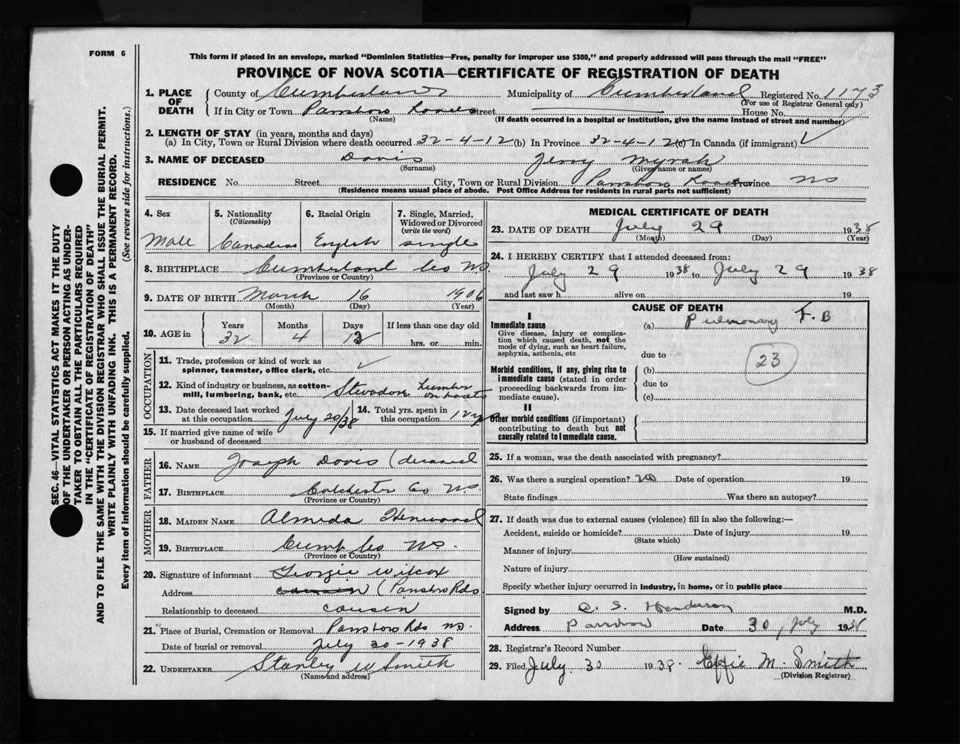 FORM 6
This form if placed in an envelope, marked "Dominion Statistics—Free, penalty for improper use $300," and properly addressed will pass through the mail "FREE"
PROVINCE OF NOVA SCOTIA—CERTIFICATE OF REGISTRATION OF DEATH
SEC. 46—VITAL STATISTICS ACT MAKES IT THE DUTY
OF THE UNDERTAKER OR PERSON ACTING AS UNDER-
TAKER TO OBTAIN ALL THE PARTICULARS REQUIRED
IN THE "CERTIFICATE OF REGISTRATION OF DEATH"
AND TO FILE THE SAME WITH THE DIVISION REGISTRAR WHO SHALL ISSUE THE BURIAL PERMIT.
WRITE PLAINLY WITH UNFADING INK. THIS IS A PERMANENT RECORD.
Every item of information should be carefully supplied. (See reverse side for instructions.)
1. PLACE OF DEATH County of Cumberland Municipality of Cumberland Registered No. 1173
(For use of Registrar General only)
If in City or Town Parrsboro Roads Street House No.
(Name) (If death occurred in a hospital or institution, give the name instead of street and number)
2. LENGTH OF STAY (in years, months and days)
(a) In City, Town or Rural Division where death occurred 32-4-12 (b) In Province 32-4-12 (c) In Canada (if immigrant) ✓
3. NAME OF DECEASED Davis Jenny Myrah
(Surname) (Given name or names)
RESIDENCE No. Street City, Town or Rural Division Parrsboro Roads Province NS
(Residence means usual place of abode. Post Office Address for residents in rural parts not sufficient)
4. Sex 5. Nationality (Citizenship) 6. Racial Origin 7. Single, Married, Widowed or Divorced (write the word)
Male Canadian English single
8. BIRTHPLACE Cumberland Co NS.
(Province or Country)
9. DATE OF BIRTH March 16 1906
(Month) (Day) (Year)
10. AGE in Years Months Days If less than one day old
32 4 13 hrs. or min.
OCCUPATION
11. Trade, profession or kind of work as spinner, teamster, office clerk, etc. ✓
12. Kind of industry or business, as cotton-mill, lumbering, bank, etc. Stevodon Lumber on boats
13. Date deceased last worked at this occupation July 20/38 14. Total yrs. spent in this occupation 12 yrs
15. If married give name of wife or husband of deceased
FATHER
16. NAME Joseph Davis (deceased
17. BIRTHPLACE Colchester Co NS
(Province or Country)
MOTHER
18. MAIDEN NAME Almeda Henwood
19. BIRTHPLACE Cumb Co NS.
(Province or Country)
20. Signature of informant Georgie Wilcox
Address cousin (Parrsboro Rds.
Relationship to deceased cousin
21. Place of Burial, Cremation or Removal Parrsboro Rds NS.
Date of burial or removal July 30-1938
22. UNDERTAKER Stanley W Smith
(Name and address)
MEDICAL CERTIFICATE OF DEATH
23. DATE OF DEATH July 29 1938
(Month) (Day) (Year)
24. I HEREBY CERTIFY that I attended deceased from:
July 29 1938 to July 29 1938
and last saw h alive on 19
CAUSE OF DEATH
I
Immediate cause
Give disease, injury or complication which caused death, not the mode of dying, such as heart failure, asphyxia, asthenia, etc
(a) Pulmonary T.B
due to
23
Morbid conditions, if any, giving rise to immediate cause (stated in order proceeding backwards from immediate cause).
(b)
due to
(c)
II
Other morbid conditions (if important) contributing to death but not causally related to immediate cause.
25. If a woman, was the death associated with pregnancy?
26. Was there a surgical operation? no Date of operation 19
State findings Was there an autopsy?
27. If death was due to external causes (violence) fill in also the following:—
Accident, suicide or homicide? Date of injury 19
(State which)
Manner of injury
(How sustained)
Nature of injury
Specify whether injury occurred in industry, in home, or in public place
Signed by S. Henderson M.D.
Address Parrsboro Date 30 July 1938
28. Registrar's Record Number
29. Filed July. 30 1938. Effie M. Smith
(Division Registrar)